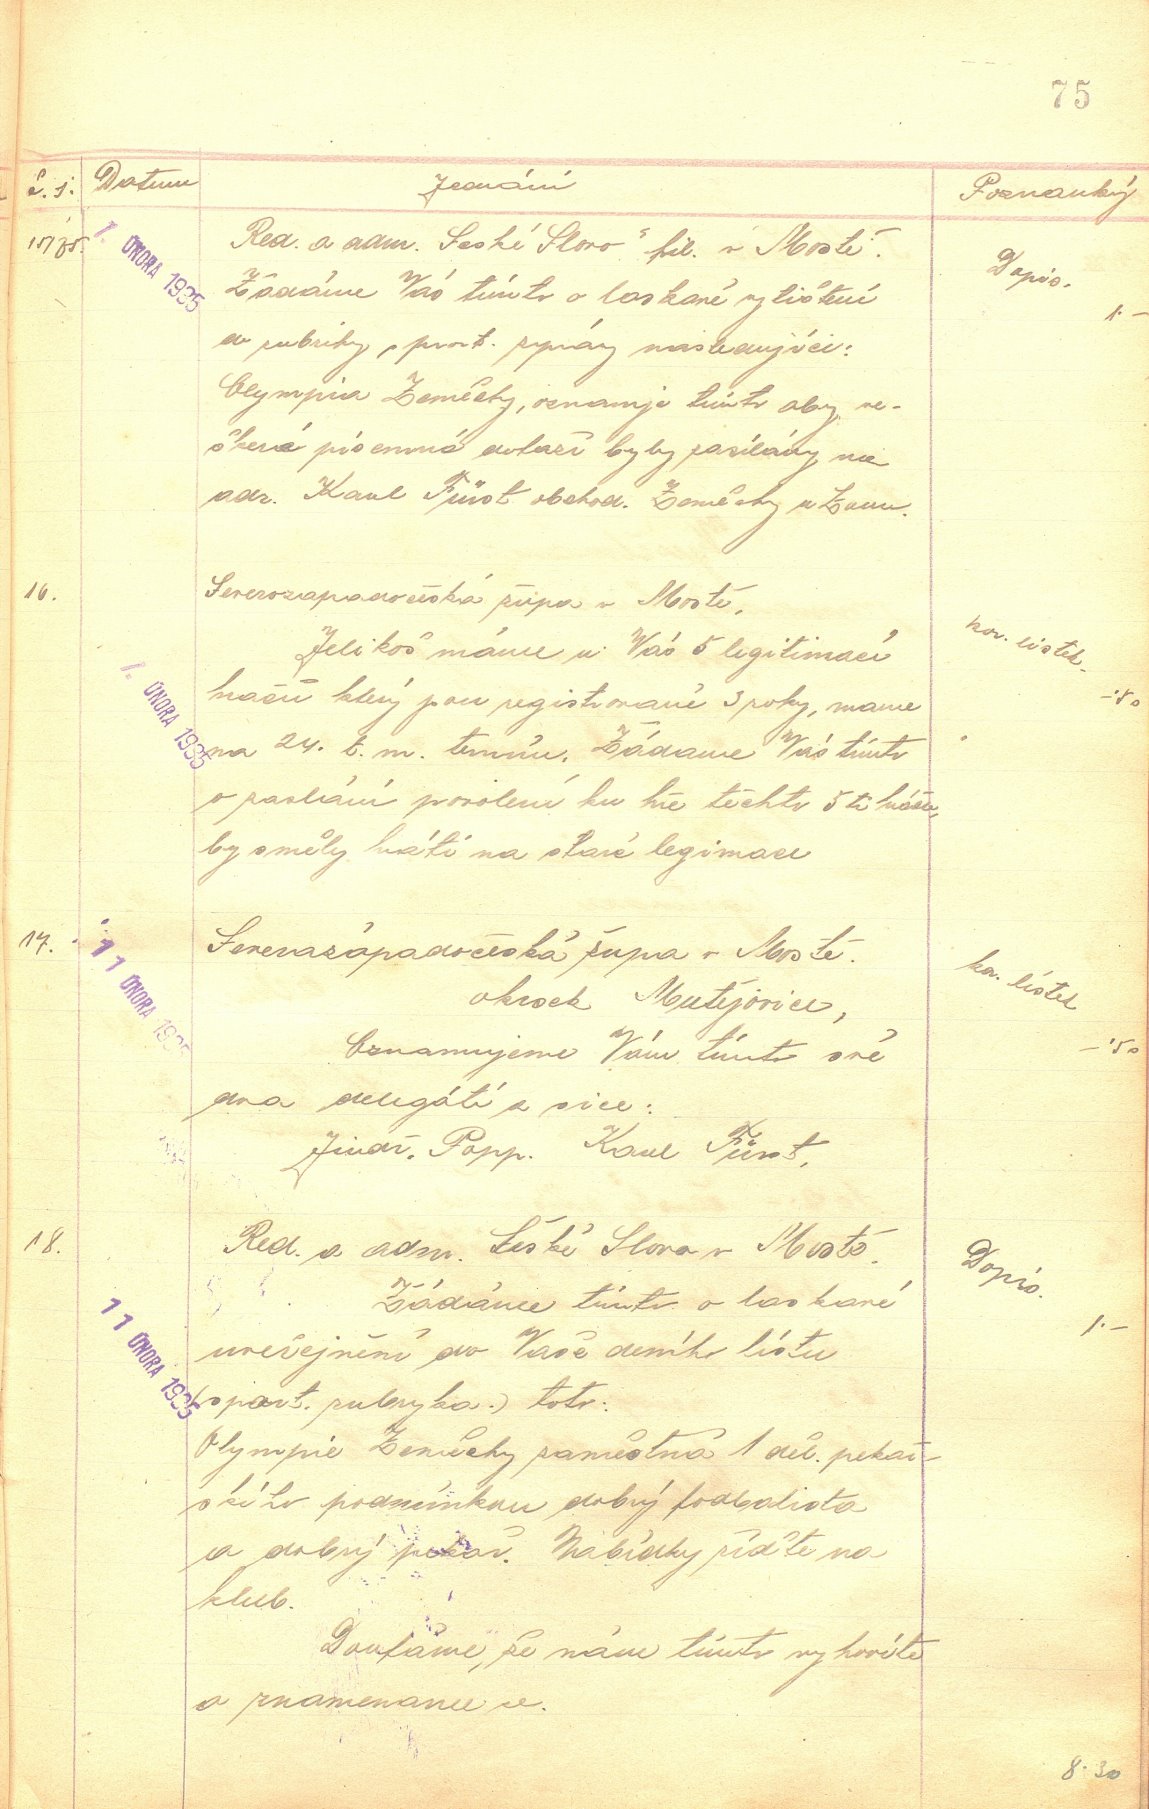 75
č. j. Datum Jednání Poznámky
15/35. 1. ÚNORA 1935 Red. a adm. České Slovo" fil. v Mostě. Dopis.
Žádáme Vás tímto o laskavé vytištení 1.-
do rubriky sport. zprávy následujíci:
Olympia Žeměchy, oznamuje tímto aby ve-
škerá písemná dotazi byly zasílány na
adr. Karel Fürst obchod. Žeměchy u Loun.
16. Severozapadočeská župa v Mostě. kor. lístek.
Jelikoš máme u Vás 5 legitimací
1. ÚNORA 1935 hračů který jsou registrované 3 roky, mame -'50
na 24. t. m. termín. Žádame Vás tímto
o zaslání povolení ku hře těchto 5 ti hráču,
by směly hráti na staré legimace
17. 11 ÚNORA 1935 Severozápadočeská župa v Mostě. kor. lístek
okrsek Mutějovice,
Oznamujeme Vám tímto své -'50
dva delegáti a sice:
Jindř. Popp. Karel Fürst.
18. Red. a adm. České Slovo v Mostě. Dopis.
11 ÚNORA 1935 Žádáme tímto o laskavé 1.-
uveřejnění do Vaše deního listu
(sport. rubryka.) toto:
Olympie Žeměchy zaměstná 1 děl. pekař-
ského podmínkou dobrý fodbalista
a dobrý pekař. Nabídky řiďte na
klub.
Doufáme, že nám tímto vyhovíte
a znamename se.
8.30